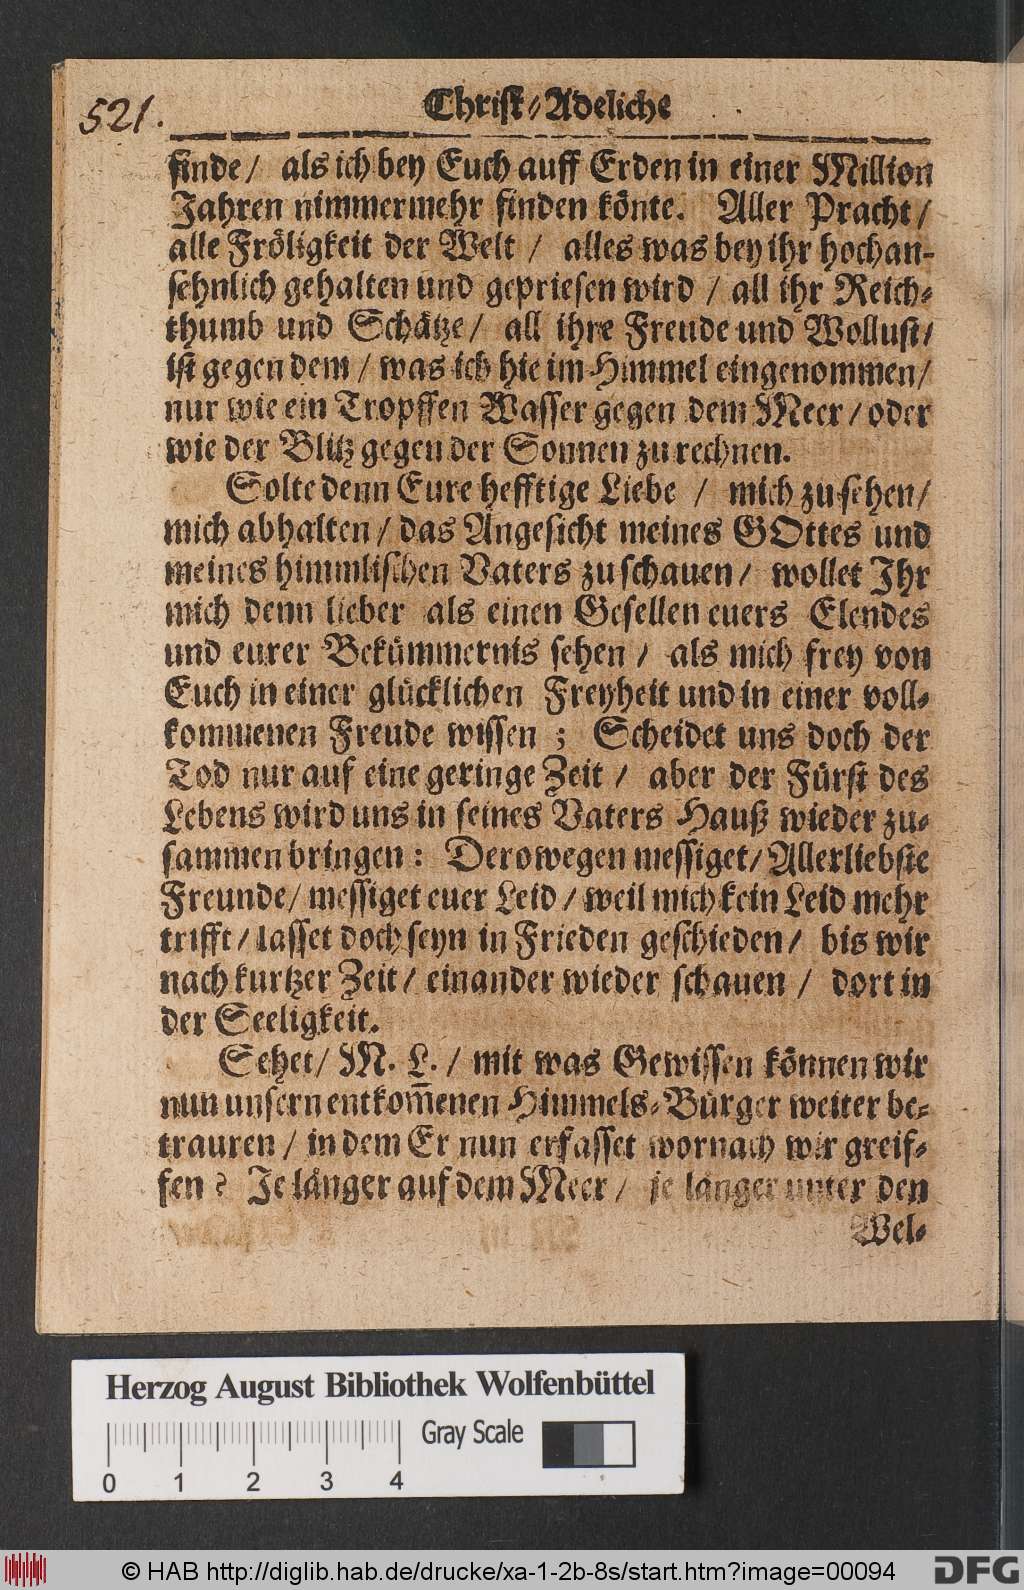 521.
Christ-Adeliche
finde/ als ich bey Euch auff Erden in einer Million
Jahren nimmermehr finden könte. Aller Pracht/
alle Fröligkeit der Welt/ alles was bey ihr hochan-
sehnlich gehalten und gepriesen wird/ all ihr Reich-
thumb und Schätze/ all ihre Freude und Wollust/
ist gegen dem/ was ich hie im Himmel eingenommen/
nur wie ein Tropffen Wasser gegen dem Meer/ oder
wie der Blitz gegen der Sonnen zu rechnen.
Solte denn Eure hefftige Liebe/ mich zu sehen/
mich abhalten/ das Angesicht meines GOttes und
meines himmlischen Vaters zu schauen/ wollet Ihr
mich denn lieber als einen Gesellen euers Elendes
und eurer Bekümmernis sehen/ als mich frey von
Euch in einer glücklichen Freyheit und in einer voll-
kommenen Freude wissen; Scheidet uns doch der
Tod nur auf eine geringe Zeit/ aber der Fürst des
Lebens wird uns in seines Vaters Hauß wieder zu-
sammen bringen: Derowegen messiget/ Allerliebste
Freunde/ messiget euer Leid/ weil mich kein Leid mehr
trifft/ lasset doch seyn in Frieden geschieden/ bis wir
nach kurtzer Zeit/ einander wieder schauen/ dort in
der Seeligkeit.
Sehet/ M. L./ mit was Gewissen können wir
nun unsern entkom̅enen Himmels-Bürger weiter be-
trauren/ in dem Er nun erfasset wornach wir greif-
fen? Je länger auf dem Meer/ je länger unter den
Wel-
Herzog August Bibliothek Wolfenbüttel
Gray Scale
0 1 2 3 4
© HAB http://diglib.hab.de/drucke/xa-1-2b-8s/start.htm?image=00094
DFG